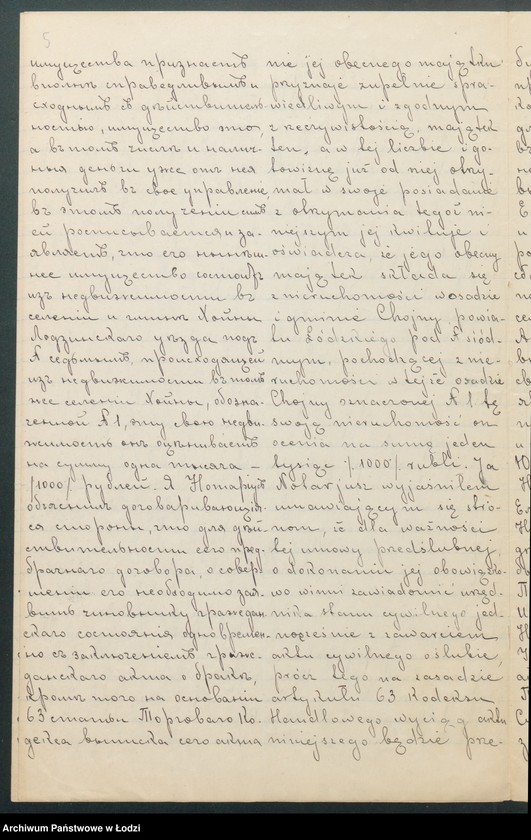 5
имущества признаетъ
вполнѣ справедливымъ и
сходнымъ съ дѣйствитель-
ностью, имущество то,
а въ томъ числѣ и налич-
ныя деньги уже отъ нея
получилъ въ свое управленіе,
въ этомъ полученіи симъ
ей росписывается и за-
являетъ, что его нынѣш-
нее имущество состоитъ
изъ недвижимости въ
селеніи и гминѣ Хойны
Лодзинскаго уѣзда подъ
№ седьмымъ, происходящей
изъ недвижимости въ томъ
же селеніи Хойны, обозна-
ченной № 1, эту свою недви-
жимость онъ оцѣниваетъ
на сумму одна тысяча –
/1000/ рублей. Я Нотаріусъ
объяснилъ договаривающим-
ся сторонамъ, что для дѣй-
ствительности сего пред-
брачнаго договора, о совер-
шеніи его необходимо зая-
вить чиновнику граждан-
скаго состоянія одновремен-
но съ заключеніемъ граж-
данскаго акта о бракѣ,
кромѣ того на основаніи
63 статьи Торговаго Ко-
декса выписка сего акта
nie jej obecnego majątku
przyznaje zupełnie spra-
wiedliwym i zgodnym
z rzeczywistością, majątek
ten, a w tej liczbie i go-
towiznę już od niej otrzy-
mał w swoje posiadanie
z otrzymania tegoż ni-
niejszym jej kwituje i
oświadcza, że jego obecny
majątek składa się
z nieruchomości w osadzie
i gminie Chojny powia-
tu Łódzkiego pod № siód-
mym, pochodzącej z nie-
ruchomości w tejże osadzie
Chojny oznaczonej № 1 tę
swoją nieruchomość on
ocenia na sumę jeden
tysiąc /1000/ rubli. Ja
Notarjusz wyjaśniłem
umawiającym się stro-
nom, iż dla ważności
tej umowy przedślubnej,
o dokonaniu jej obowiązko-
wo winni zawiadomić urzęd-
nika stanu cywilnego jed-
nocześnie z zawarciem
aktu cywilnego o ślubie,
prócz tego na zasadzie
artykułu 63 Kodeksu
Handlowego wyciąg aktu
niniejszego będzie prze-
Archiwum Państwowe w Łodzi